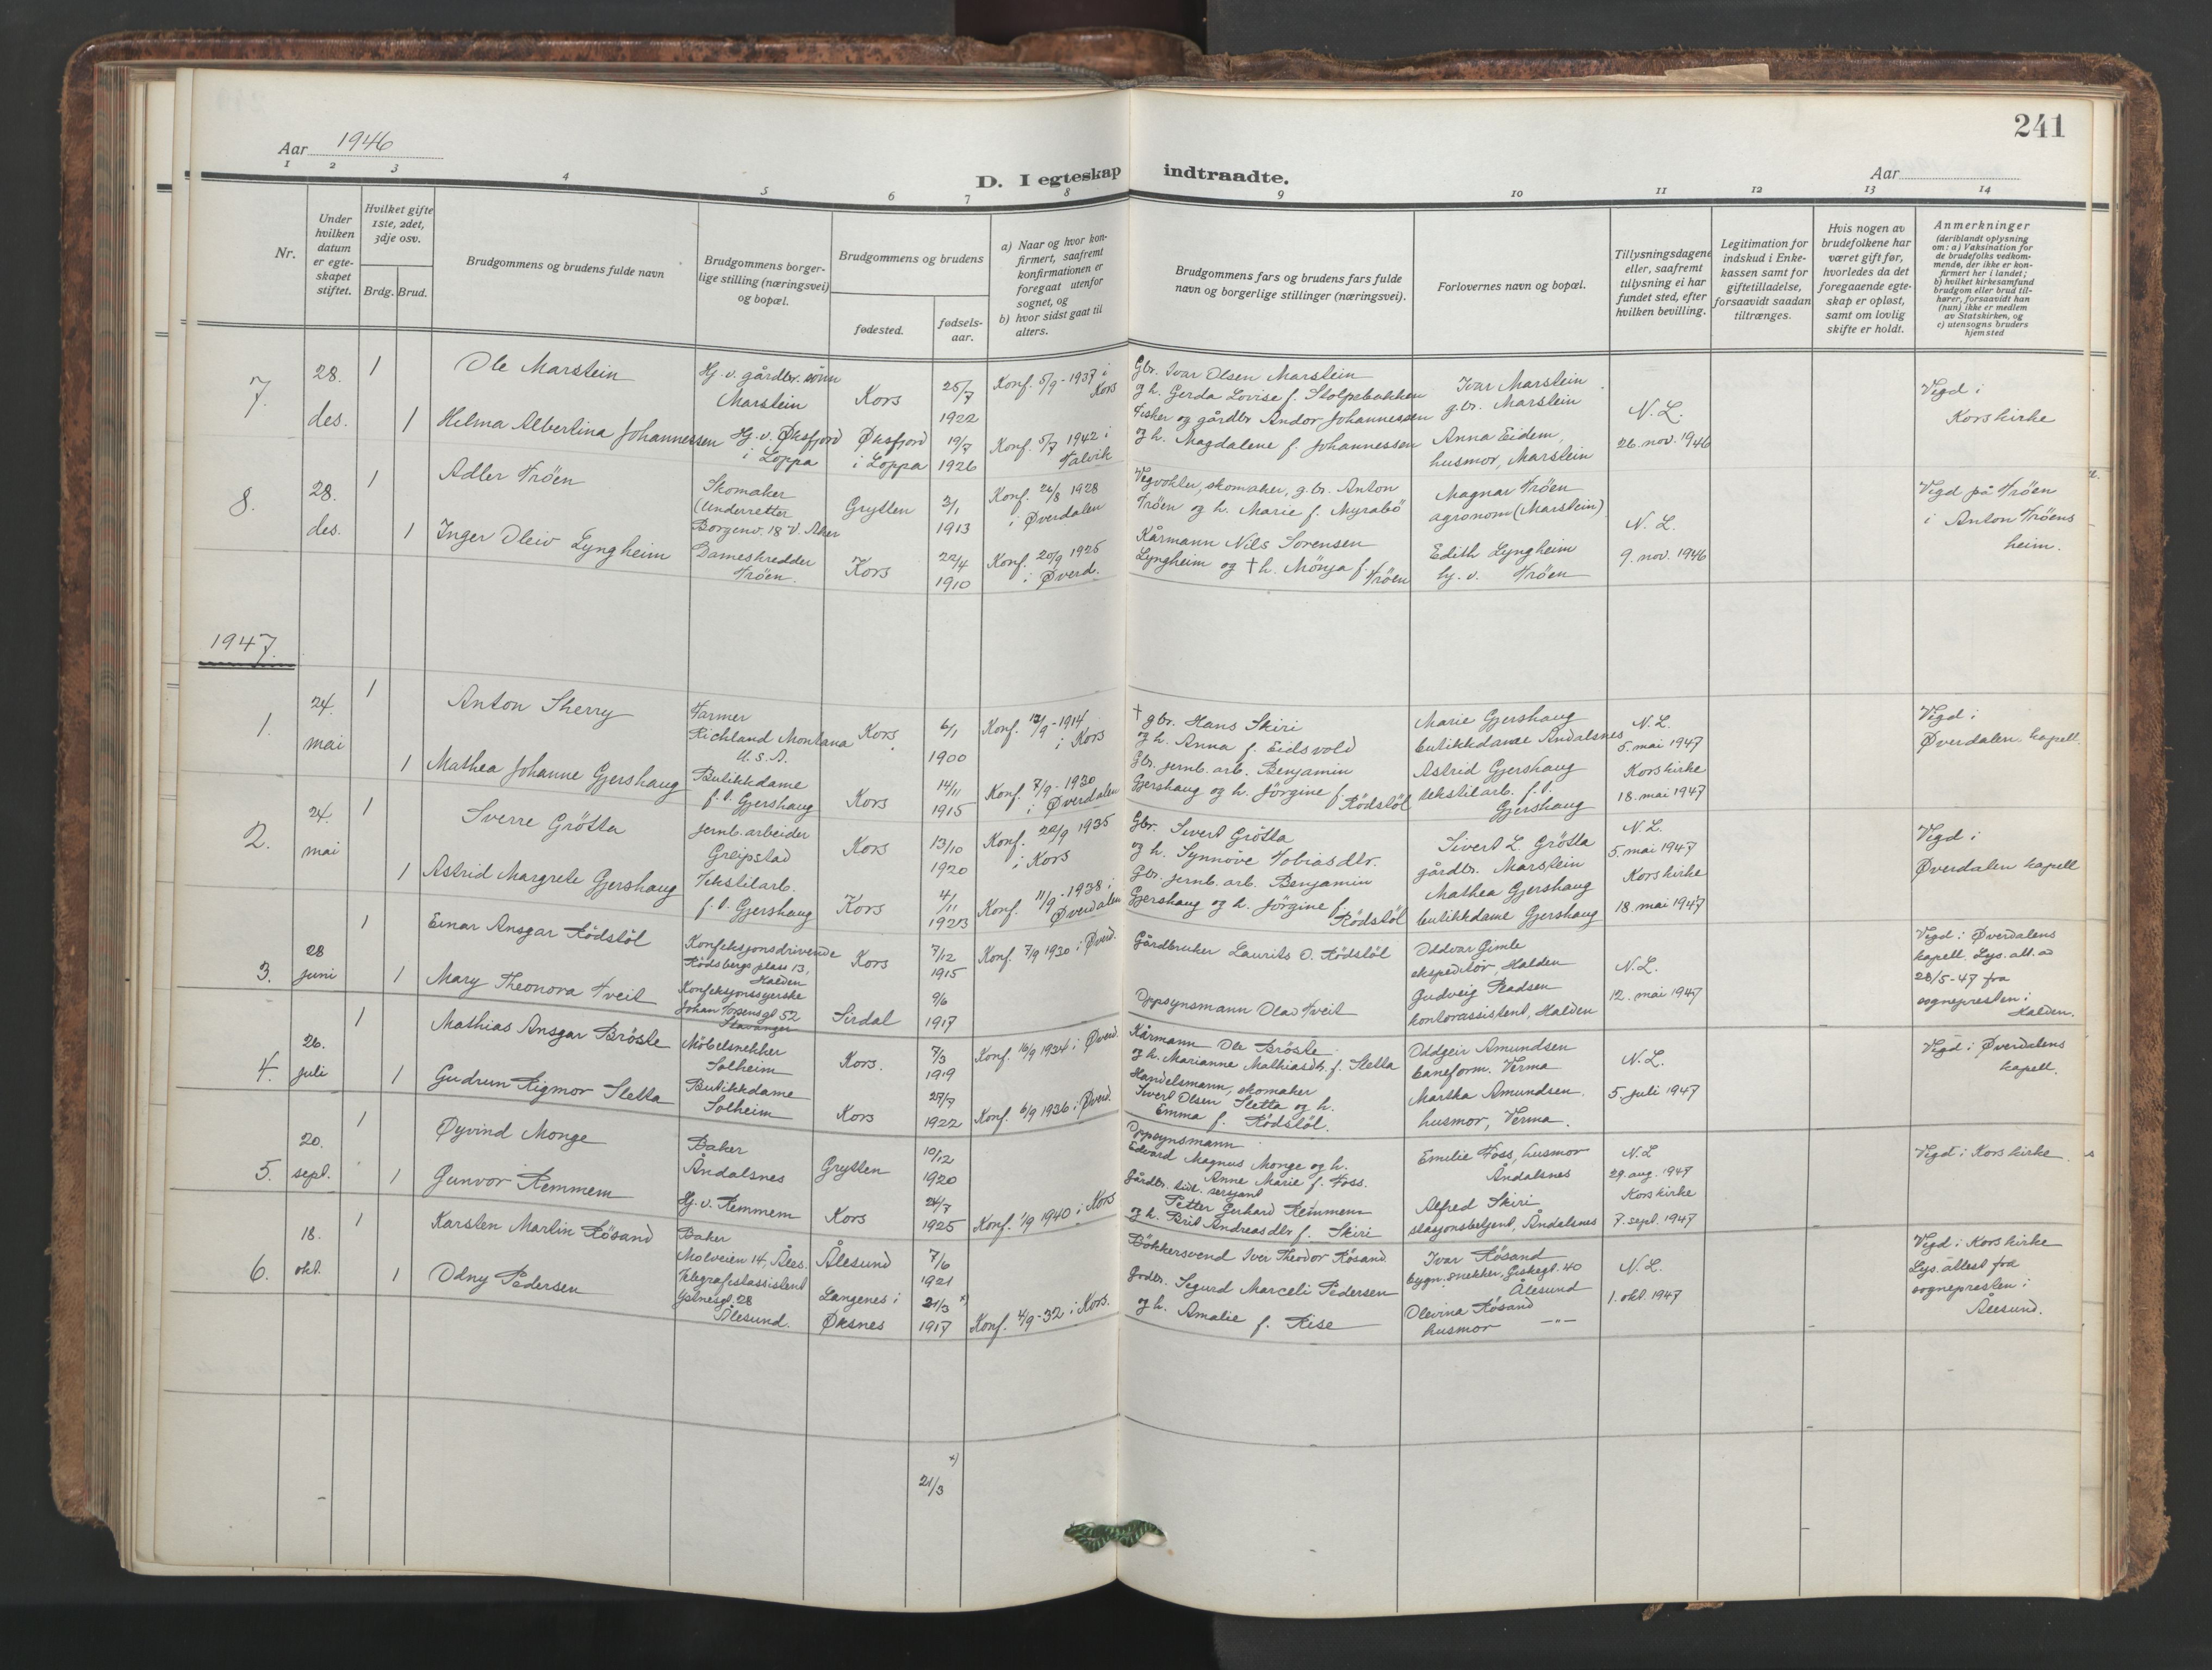 241
Aar 1946
Aar
D. I egteskap indtraadte.
1 2 3 4 5 6 7 8 9 10 11 12 13 14
Nr.
Under
hvilken
datum
er egte-
skapet
stiftet.
Hvilket gifte
1ste, 2det,
3dje osv.
Brdg. Brud.
Brudgommens og brudens fulde navn
Brudgommens borger-
lige stilling (næringsvei)
og bopæl.
Brudgommens og brudens
fødested.
fødsels-
aar.
a) Naar og hvor kon-
firmert, saafremt
konfirmationen er
foregaat utenfor
sognet, og
b) hvor sidst gaat til
alters.
Brudgommens fars og brudens fars fulde
navn og borgerlige stillinger (næringsvei).
Forlovernes navn og bopæl.
Tillysningsdagene
eller, saafremt
tillysning ei har
fundet sted, efter
hvilken bevilling.
Legitimation for
indskud i Enke-
kassen samt for
giftetilladelse,
forsaavidt saadan
tiltrænges.
Hvis nogen av
brudefolkene har
været gift før,
hvorledes da det
foregaaende egte-
skap er opløst,
samt om lovlig
skifte er holdt.
Anmerkninger
(deriblandt oplysning
om: a) Vaksination for
de brudefolks vedkom-
mende, der ikke er kon-
firmert her i landet;
b) hvilket kirkesamfund
brudgom eller brud til-
hører, forsaavidt han
(hun) ikke er medlem
av Statskirken, og
c) utensogns bruders
hjemsted
7.
28.
des.
1
Ole Marstein
Hj. v. gårdbr. sønn
Marstein
Kors
25/7
1922
Konf. 5/9-1937 i
Kors
Gbr. Ivar Olsen Marstein
og h. Gerda Lovise f. Stolpebakken
Ivar Marstein
g.br. Marstein
N. L.
26. nov. 1946
Vigd i
Kors kirke
1
Helma Albertina Johannessen
Hj. v. Øksfjord
i Loppa
Øksfjord
i Loppa
19/7
1926
Konf. 5/7 1942 i
Talvik
Fisker og gårdbr Andor Johannessen
og h. Magdalene f. Johannessen
Anna Eidem,
husmor, Marstein
8.
28.
des.
1
Adler Trøen
Skomaker
(Underretter
Borgenv. 18 V. Aker
Grytten
3/1
1913
Konf. 26/8 1928
i Øverdalen
Vegvokter, skomaker, g.br. Anton
Trøen og h. Marie f. Myrabø
Magnar Trøen
agronom (Marstein)
N. L.
9. nov. 1946
Vigd på Trøen
i Anton Trøens
heim.
1
Inger Oleiv Lyngheim
Dameskredder
Trøen.
Kors
22/4
1910
Konf. 20/9 1925
i Øverd.
Kårmann Nils Sorensen
Lyngheim og † h. Mönja f. Trøen
Edith Lyngheim
hj. v. Trøen
1947.
1.
24.
mai
1
Anton Sherry
Farmer
Richland Montana
U. S. A.
Kors
6/1
1900
Konf. 13/9-1914
i Kors
† gbr. Hans Skiri
og h. Anna f. Eidsvold
Marie Gjershaug
butikkdame Åndalsnes
N. L.
5. mai 1947
Kors kirke
18. mai 1947
Vigd i
Øverdalen kapell.
1
Mathea Johanne Gjershaug
Butikkdame
f. t. Gjershaug
Kors
14/11
1915
Konf. 7/9-1930
i Øverdalen
Gbr. jernb. arb. Benjamin
Gjershaug og h. Jörgine f. Rödstöl
Astrid Gjershaug
tekstilarb. f. t.
Gjershaug
2.
24.
mai
1
Sverre Grötta
jernb. arbeider
Greipstad
Kors
13/10
1920
Konf. 22/9 1935
i Kors
Gbr. Sivert Grötta
og h. Synnöve Tobiasdtr.
Sivert L. Grötta
gårdbr. Marstein
N. L.
5. mai 1947
Kors kirke
18. mai 1947
Vigd i
Øverdalen kapell
1
Astrid Margrete Gjershaug
Tekstilarb.
f. t. Gjershaug
Kors
4/11
1923
Konf. 11/9-1938 i
Øverdalen
Gbr. jernb. arb. Benjamin
Gjershaug og h. Jörgine f. Rödstöl
Mathea Gjershaug
butikkdame Gjershaug
3.
28
juni
1
Einar Ansgar Rödstöl
Konfeksjonsdrivende
Rödsbergs plass 13,
Halden
Kors
7/12
1915
Konf. 7/9 1930 i Øverd.
Gårdbruker Laurits O. Rödstöl
Oddvar Gimle
ekspeditör, Halden
N. L.
12. mai 1947
Vigd i Øverdalens
kapell. Lys. att. av
28/5-47 fra
sognepresten i
Halden.
1
Mary Theonora Tveit
Konfeksjonssyerske
Johan Torsensgt 52
Stavanger
Sirdal
9/6
1917
Oppsynsmann Olav Tveit
Gudveig Madsen
kontorassistent, Halden
4.
26.
juli
1
Mathias Ansgar Bröste
Möbelsnekker
Solheim
Kors.
7/3
1919
Konf. 16/9 1934 i Øverd.
Kårmann Ole Bröste
og h. Marianne Mathiasdtr. f. Sletta
Oddgeir Amundsen
baneform. Verma
N. L.
5. juli 1947
Vigd i Øverdalens
kapell.
1
Gudrun Rigmor Sletta
Butikkdame
Solheim
Kors
27/7
1922
Konf. 6/9 1936 i Øverd.
Handelsmann, skomaker
Sivert Olsen Sletta og h.
Emma f. Rödstöl.
Martha Amundsen.
husmor, Verma.
5.
20.
sept.
1
Øyvind Monge
Baker
Åndalsnes
Grytten
10/12
1920
Oppsynsmann
Edvard Magnus Monge og h.
Anne Marie f. Foss.
Emilie Foss, husmor
Åndalsnes
N. L
29. aug. 1947
Kors kirke
7. sept. 1947
Vigd i Kors kirke
1
Gunvor Remmem
Hj. v. Remmem
Kors
24/7
1925
Konf. 1/9 1940 i Kors
Gårdbr. tid. sersjant
Petter Gerhard Remmem
og h. Brit Andreasdtr f. Skiri
Alfred Skiri
stasjonsbetjent, Åndalsnes
6.
18.
okt.
1
Karsten Martin Røsand
Baker
Molveien 14, Åles.
Ålesund
7/6
1921
Bökkersvend Iver Theodor Røsand.
Ivar Røsand
bygn. snekker, Giskegt. 40
Ålesund
N. L.
1. okt. 1947
Vigd i Kors kirke
Lys. attest fra
sognepresten i
Ålesund.
1
Odny Pedersen
Telegrafistassistent
Ystnesgt. 28
Ålesund.
Langenes i
Øksnes
21/3 x)
1917
Konf. 4/9-32 i Kors.
Gbr. Sigurd Marceli Pedersen
og h. Amalie f. Rise
Olevina Røsand
husmor —"—
x)
21/3